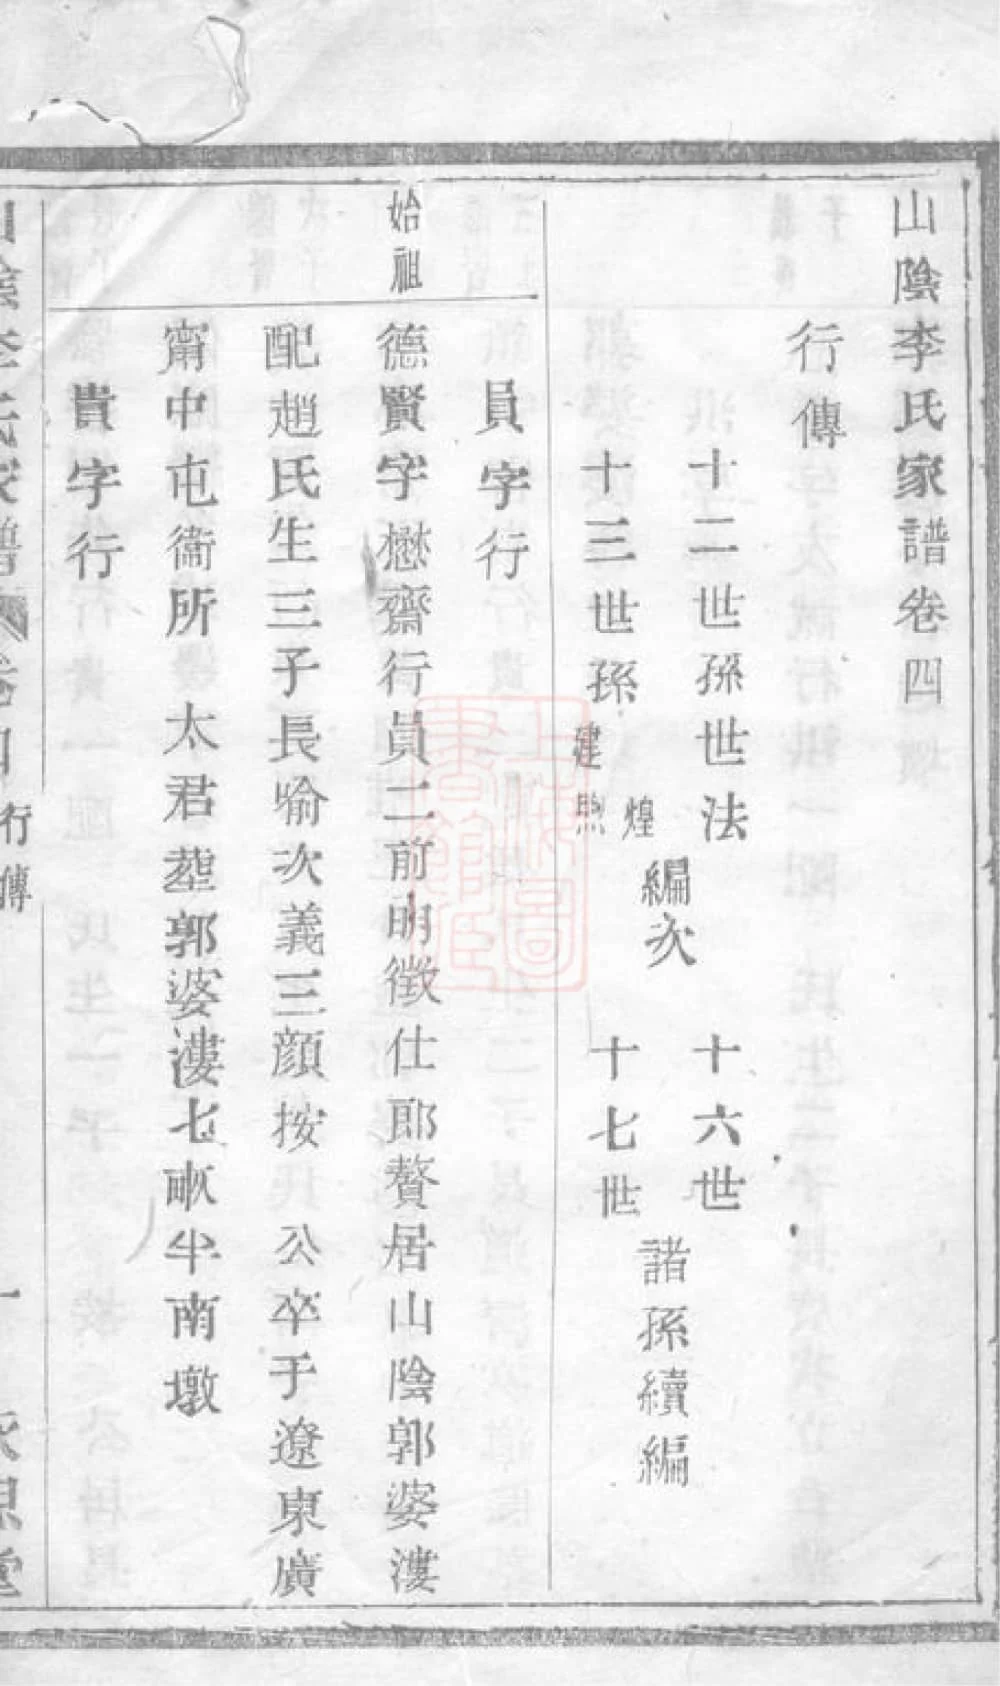 山陰李氏家譜卷四
行傳
十二世孫世法
十三世孫建煦
煌
編次
十六世
十七世
諸孫續編
員字行
始祖
德賢字懋齋行員二前明徵仕郎贅居山陰郭婆漊
配趙氏生三子長喻次義三顔按 公卒于遼東廣
甯中屯衞所 太君塟郭婆漊七畝半南墩
貴字行
山陰李氏家譜 卷四 行傳 一